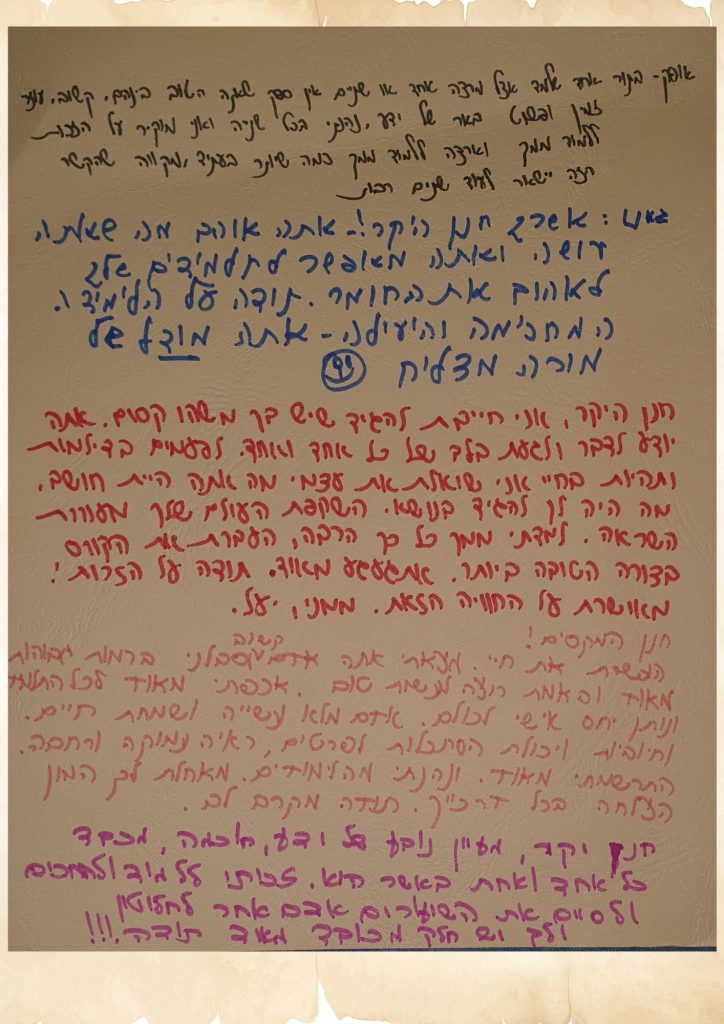 אופק- בתור אחד שלמד אצל מרצה אחד או שניים אין ספק שאתה הטוב ביניהם. קשוב, עוזר
ופשוט באר של ידע. נהנתי בכל שנייה ואני מוקיר על הזכות
ללמוד ממך וארצה ללמוד ממך כמה שיותר בעתיד, מקווה שהקשר
הזה יישאר לעוד שנים רבות
חנן היקר!- אתה אוהב מה שאתה
עושה ואתה מאפשר לתלמידים שלך
לאהוב את החומר. תודה על הלימידה
המחכימה והיעילה - אתה מודל של
מורה מצליח
חנן היקר, אני חייבת להגיד שיש בך משהו קסום. אתה
יודע לדבר ולגעת בלב של כל אחד ואחד. לפעמים בדילמות
ותהיות בחיי אני שואלת את עצמי מה אתה היית חושב,
מה היה לך להגיד בנושא. השקפת העולם שלך מעוררת
השראה. למדתי ממך כל כך הרבה, העברת את הקורס
בצורה הטובה ביותר. אתגעגע מאוד. תודה על הזכות!
מאושרת על החוויה הזאת. ממני, יעל.
חנן המקסים!
קשוב
העשרת את חיי. אתה אדם סבלני ברמות גבוהות
מאוד ובאמת רוצה. אכפתי מאוד לכל
ונותן יחס אישי לכולם. אדם מלא עשייה ושמחת חיים.
וחיוביות ויכולת הסתכלות לפרטים, ראיה עמוקה ורחבה.
התרשמתי מאוד. ונהנתי מהלימודים. מאחלת לך המון
הצלחה בכל דרכייך. תודה מקרב לב.
חנן יקר, מעיין נובע של ידע, חוכמה, מכבד
כל אחד ואחת באשר הוא. זכותי ללמוד
ולסיים את השיעורים אדם אחר לחלוטין
ולך יש חלק מכובד מאוד תודה!!!